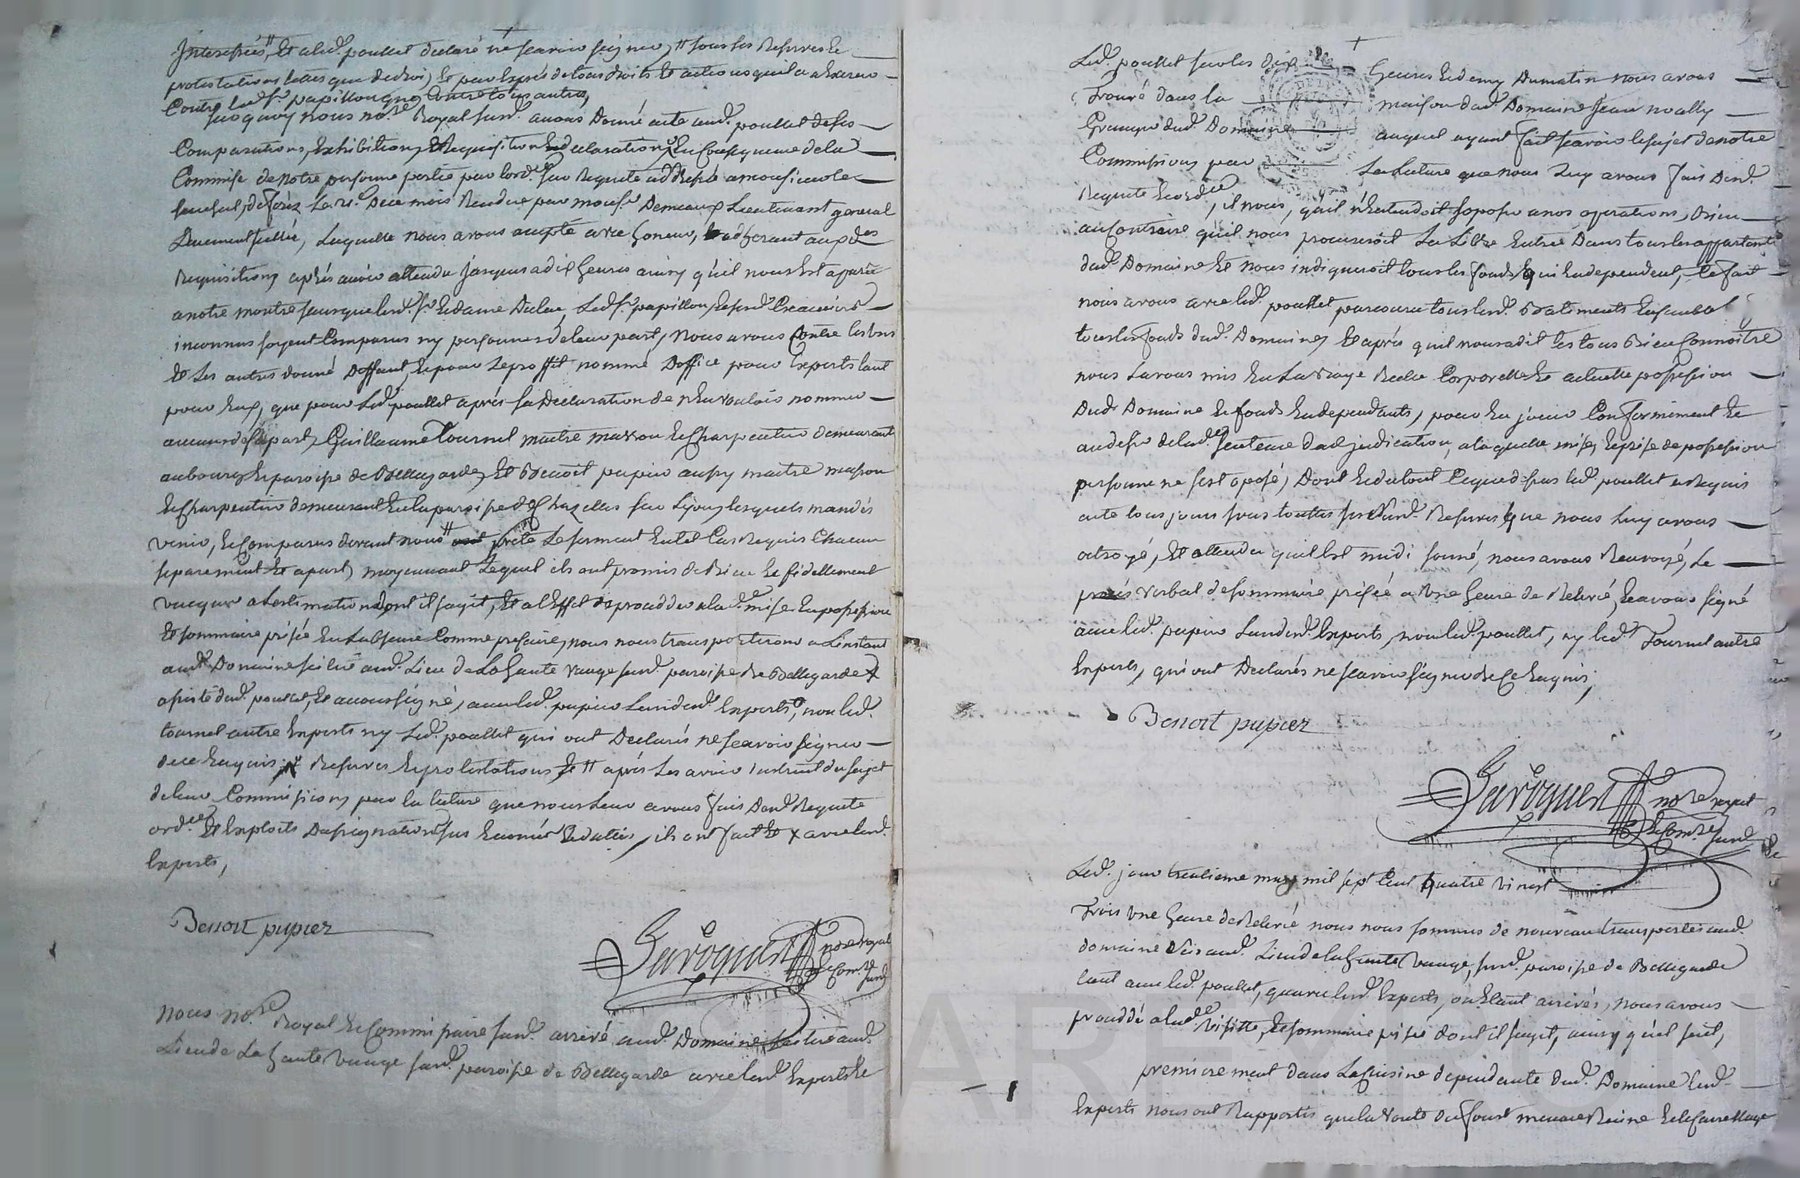 Interessés", Et aled. poullet declaré ne scavoir signer, " sous ses Reserves Et
protestations telles que dedroi, Et par Exprés detous droits Et actions quil a a Exercer
Contre led. sr. papillon, ou Contre tous autres,
surquoy nous nore. Royal susd. avons Donné acte aud. poullet deses
Comparutions, Exhibitions, Requisitions declarations, En Consequence dela
Commise de notre personne portée par lordce. sur Requete addressé a monsieur le
senechal, de forez Le 21e. De ce mois Rendue par monsr. Demeaux Lieutenant general
Duement scellée, Laquelle nous avons accepté avec honeur, adherant auxdes.
Requisitions aprés avoir attendu jusques a dix heures ainsy qu'il nous Est apparu
a notre montre sans que lesd. sr. Et dame Duluc, Led. sr. papillon, Et lesd. Creanciers
inconnus soyent Comparus ny personnes de leur part, Nous avons Contre les uns
Et Les autres donné Deffaut, Et pour Le proffit nommé D'office pour Experts tant
pour Eux, que pour Led. poullet aprés sa Declaration de n'En vouloir nommer
aucun de sa part, Guillaume Tournel maitre masson Et Charpentier demeurant
au bourg Et paroisse de Bellegarde, Et Benoit pupier aussy maitre masson
Et Charpentier demeurant En la paroisse de Chazelles sur Lyon, lesquels mandés
venir, Et Comparus devant nous " preté Le serment En tel Cas Requis Chacun
separement Et apart, moyennant Lequel ils ont promis de Bien Et fidellement
vacquer a Lestimation dont il sagit, Et a l'Effet de procedder a lade. mise En possession
Et sommaire prisée En L'absence Comme presence, nous nous transporterons a L'instant
aud. Domaine scitué aud. Lieu de La haute vauge susd. paroisse de Bellegarde x
assisté dud. poullet, Et avons signé, avec led. pupier Lun desd. Experts, non led.
tournel autre Experts ny Led. poullet qui ont Declarés ne scavoir signer
de ce Enquis, x Reserves Et protestations Et " aprés Les avoir instruit du sujet
de leur Commission, par la lecture que nous Leur avons fait Desd. Requete
ordce. Et Exploits Dassignations sus Enoncés Et dattés, ils ont fait Et x avec lesd.
Experts,
Benoit pupier
nore royal
Et Comre.
susd.
nous nore. Royal Et Commissaire susd. arrivé aud. Domaine scitué aud.
Lieu de La haute vauge susd. paroisse de Bellegarde avec lesd. Experts Et
Led. poullet sur les dix heures Et demy Du matin nous avons
Trouvé dans la maison dud. Domaine Jean
Granger dud. Domaine auquel ayant fait scavoir le sujet de notre
Commission, par La lecture que nous Luy avons fais Desd.
Requete Et ordce., il nous, qu'il n'Entendoit sopposer a nos operations, Bien
au Contraire qu'il nous procureroit La Libre Entrée Dans tous les appartements
dud. Domaine Et nous indiqueroit tous les fonds qui En dependent, Ce fait
nous avons avec led. poullet parcouru tous lesd. Batiments Ensemble
tous les fonds dud. Domaine, Et aprés quil nous a dit les tous Bien Connoitre
nous Lavons mis En La vraye Reelle Corporelle Et actuelle possession
Dud. Domaine Et fonds En dependants, pour En jouir Conformement Et
au desir de lade. sentence dadjudication, a laquelle mise, Et prise de possession
personne ne sest oposé, Dont Et du tout Ce que dessus led. poullet a Requis
acte tousjours sous touttes susd. Reserves que nous Luy avons
octroyé, Et attendu quil Est midi sonné, nous avons Renvoyé, Le
procés verbal de sommaire prisée a une heure de Relevée, Et avons signé
avec led. pupier Lun desd. Experts, non led. poullet, ny led. Tournel autre
Experts, qui ont Declarés ne scavoir signer de Ce Enquis,
Benoit pupier
nore royal
Et Comre.
susd.
Led. jour trentieme may mil sept Cent quatre vingt
Trois une heure de Relevée nous nous sommes de nouveau transportés aud.
domaine sis aud. Lieu de la haute vauge, susd. paroisse de Bellegarde
tant avec led. poullet, quavec lesd. Experts, ou Etant arrivés, nous avons
proceddé a lade. visitte, Et sommaire prisée dont il sagit, ainsy qu'il suit,
premierement dans La Cuisine dependante dud. Domaine lesd.
Experts nous ont Rapportés que la voute du four menace Ruine